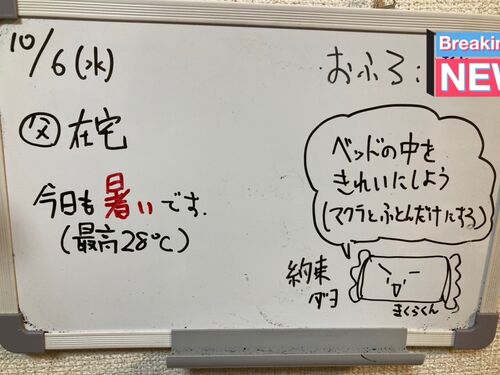 10/6(水)
おふろ:
Breakin
NEW
㊛ 在宅
今日も暑いです.
(最高28℃)
ベッドの中を
きれいにしよう
(マクラとふとんだけにする)
約束
ダヨ
まくらくん